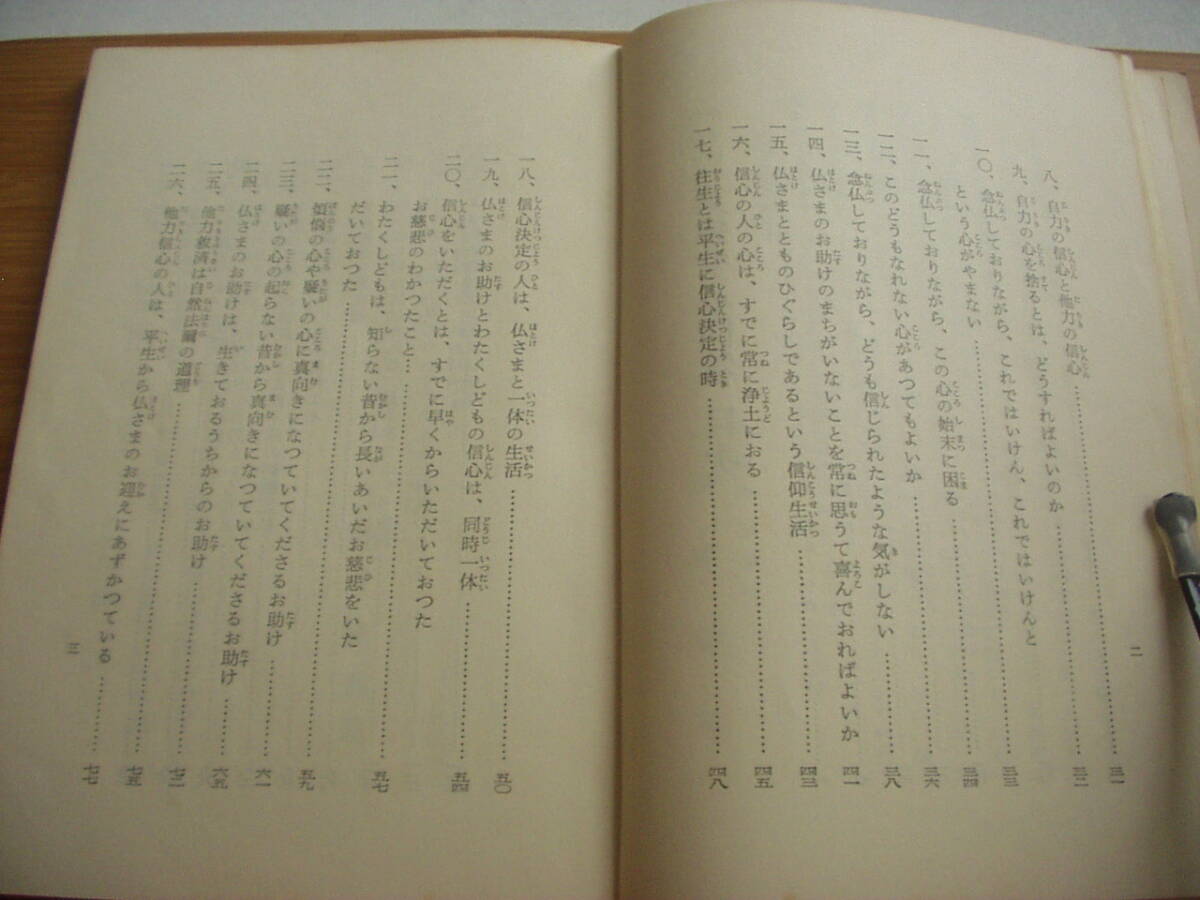 二
八、自力の信心と他力の信心……三一
九、自力の心を捨るとは、どうすればよいのか……三二
一〇、念仏しておりながら、これではいけん、これではいけんと
という心がやまない……三三
一一、念仏しておりながら、この心の始末に困る……三四
一二、このどうもなれない心があつてもよいか……三六
一三、念仏しておりながら、どうも信じられたような気がしない……三八
一四、仏さまのお助けのまちがいないことを常に思うて喜んでおればよいか……四一
一五、仏さまととものひぐらしであるという信仰生活……四三
一六、信心の人の心は、すでに常に浄土におる……四五
一七、往生とは平生に信心決定の時……四八
一八、信心決定の人は、仏さまと一体の生活……五〇
一九、仏さまのお助けとわたくしどもの信心は、同時一体……五四
二〇、信心をいただくとは、すでに早くからいただいておつた
お慈悲のわかつたこと……五七
二一、わたくしどもは、知らない昔から長いあいだお慈悲をいた
だいておつた……五九
二二、煩悩の心や疑いの心に真向きになつていてくださるお助け……六一
二三、疑いの心の起らない昔から真向きになつていてくださるお助け……六五
二四、仏さまのお助けは、生きておるうちからのお助け……七二
二五、他力救済は自然法爾の道理……七五
二六、他力信心の人は、平生から仏さまのお迎えにあずかつている……七七
三